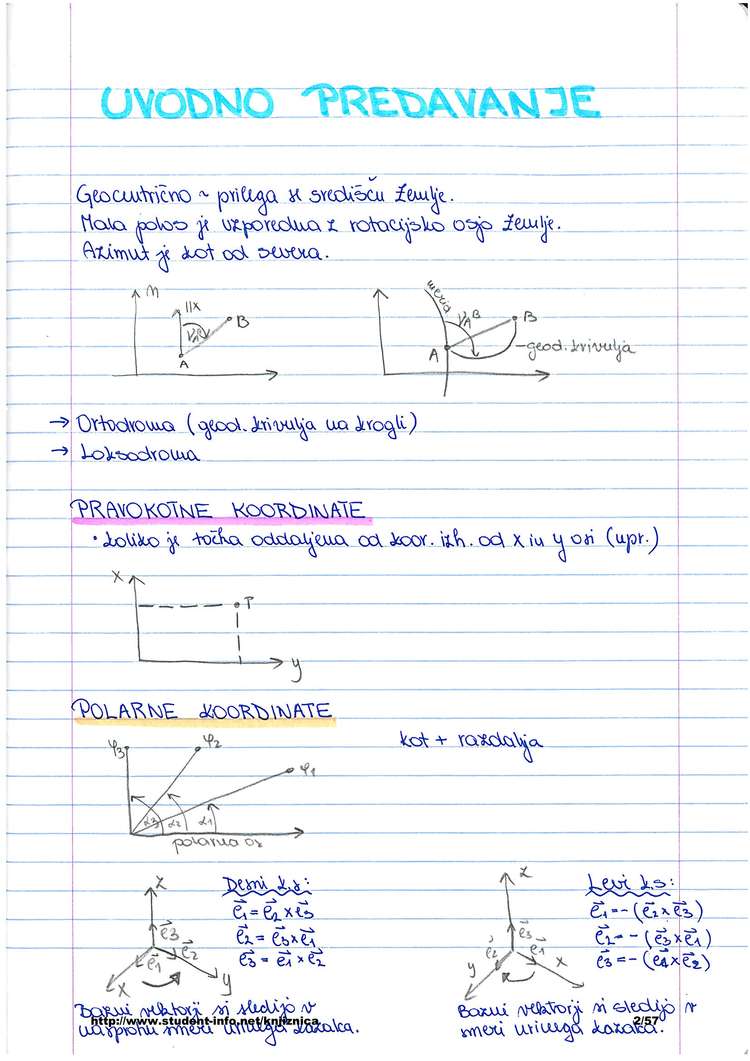 UVODNO PREDAVANJE
Geocentrično ~ prilega se središču Zemlje.
Mala polos je vzporedna z rotacijsko osjo Zemlje.
Azimut je kot od severa.
n
||x
B
A
merid
νAB
B
A
geod. krivulja
→ Ortodroma (geod. krivulja na krogli)
→ Loksodroma
PRAVOKOTNE KOORDINATE
• koliko je točka oddaljena od koor. izh. od x in y osi (npr.)
x
T
y
POLARNE KOORDINATE
kot + razdalja
φ3
φ2
φ1
α3 α2 α1
polarna os
z
e3
e1
e2
x
y
Desni k.s:
e1 = e2 x e3
e2 = e3 x e1
e3 = e1 x e2
Bazni vektorji si sledijo v
nasprotni smeri urinega kazalca.
z
e3
e2
e1
y
x
Levi k.s:
e1 = - (e2 x e3)
e2 = - (e3 x e1)
e3 = - (e1 x e2)
Bazni vektorji si sledijo v
smeri urinega kazalca.
http://www.student-info.net/knjiznica
2/57